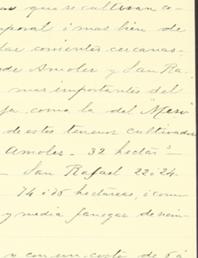 que se cultivan co-
poral i mas bien de
las corrientes cercanas
de Amoles y San Ra-
mas importantes del
como la del "Mesi
de estos terrenos cultivados
Amoles - 32 hectás -
San Rafael 22 i 24
74 i 75 hectáreas, i com
y media fanegas de sem-
con un costo de 5 á